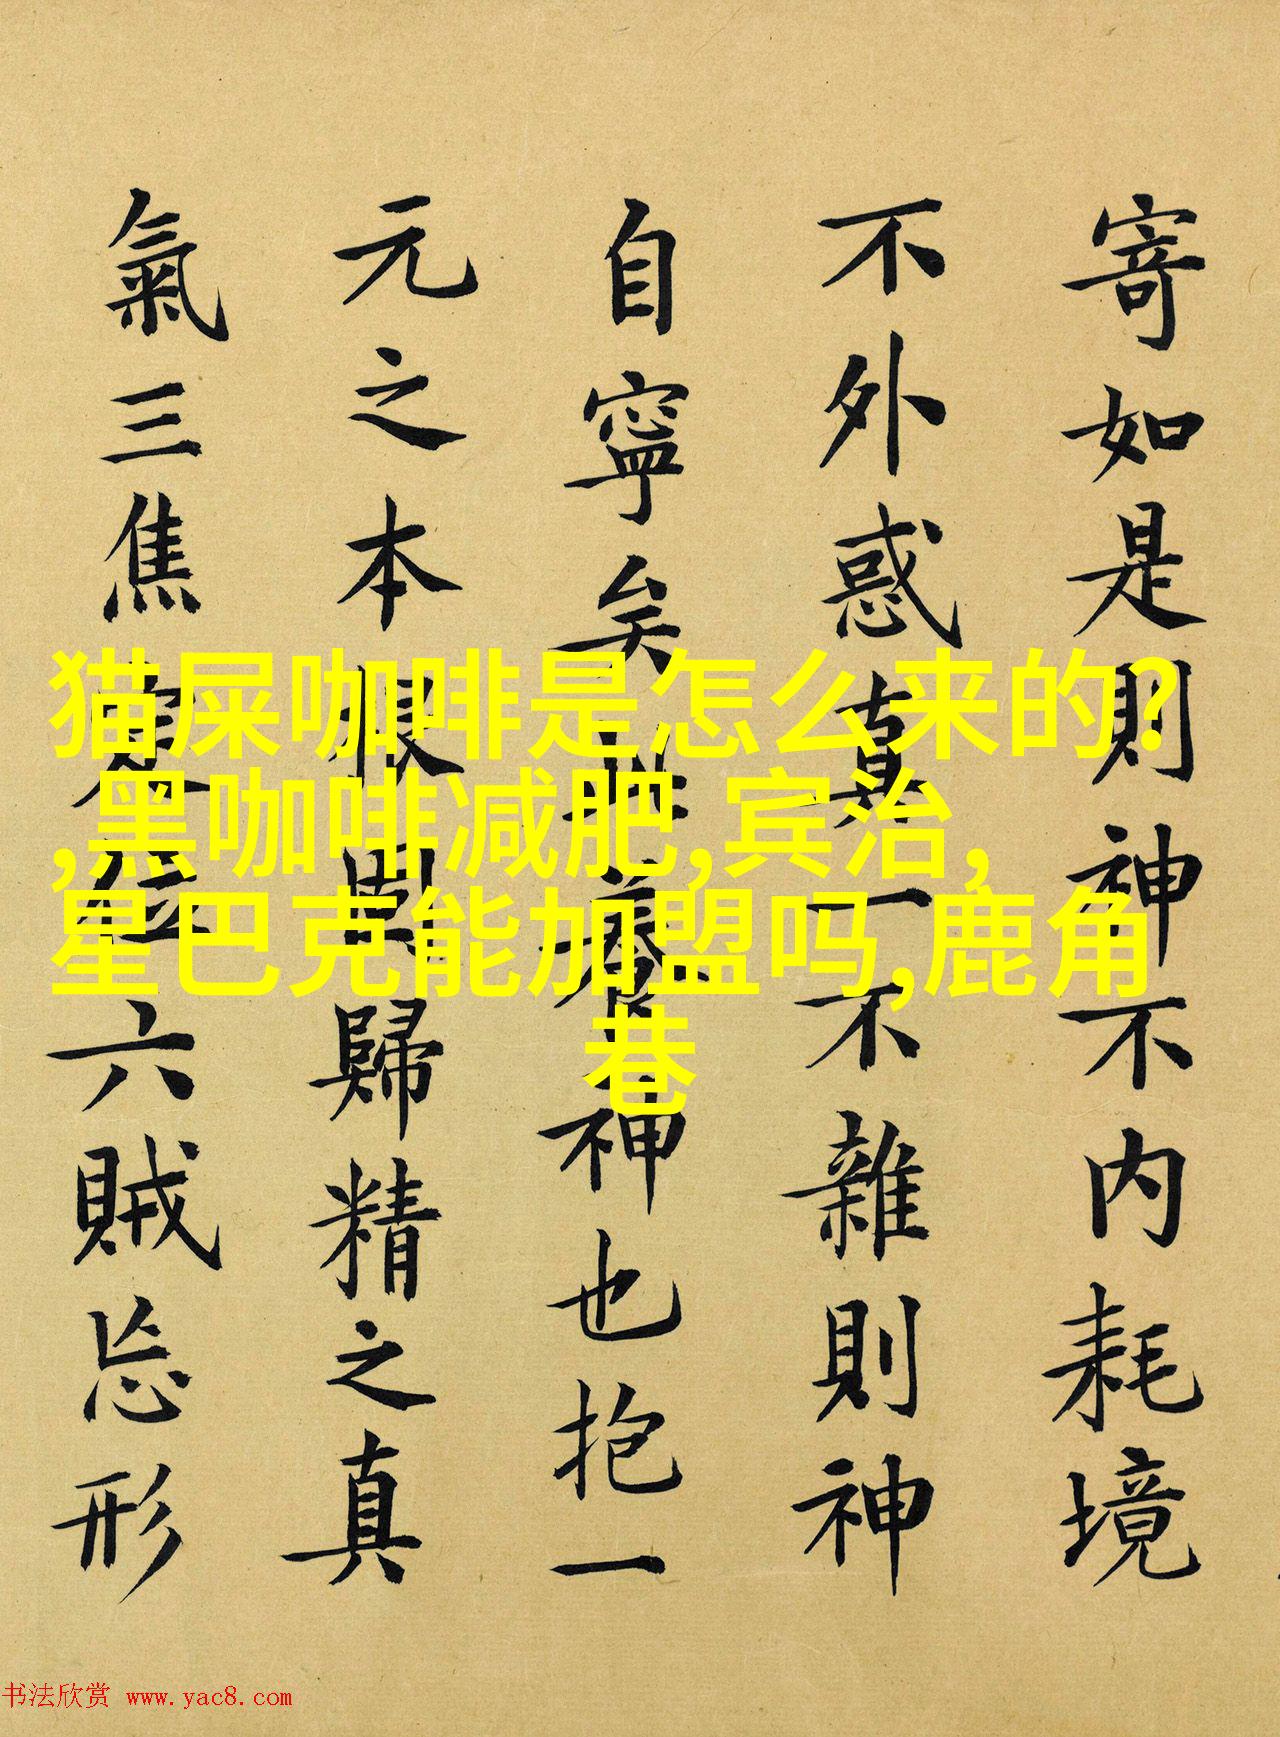 寄如是則神不内耗境
不外惑真一不雜則神
自寧矣此養神也抱一
元之本根固歸精之真
氣三焦定位六賊忘形
猫屎咖啡是怎么来的?
,黑咖啡减肥,宾治,
星巴克能加盟吗,鹿角
巷
书法欣赏 www.yac8.com